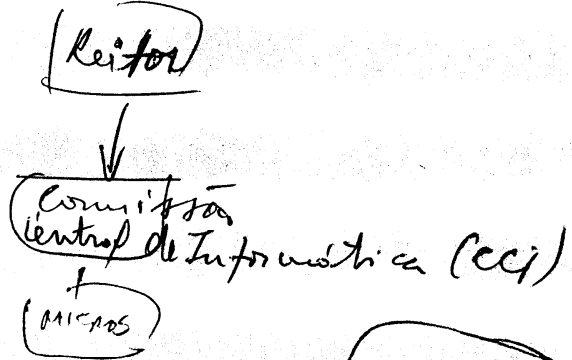 Reitor
Comissão
Central de Informática (CCI)
MICROS